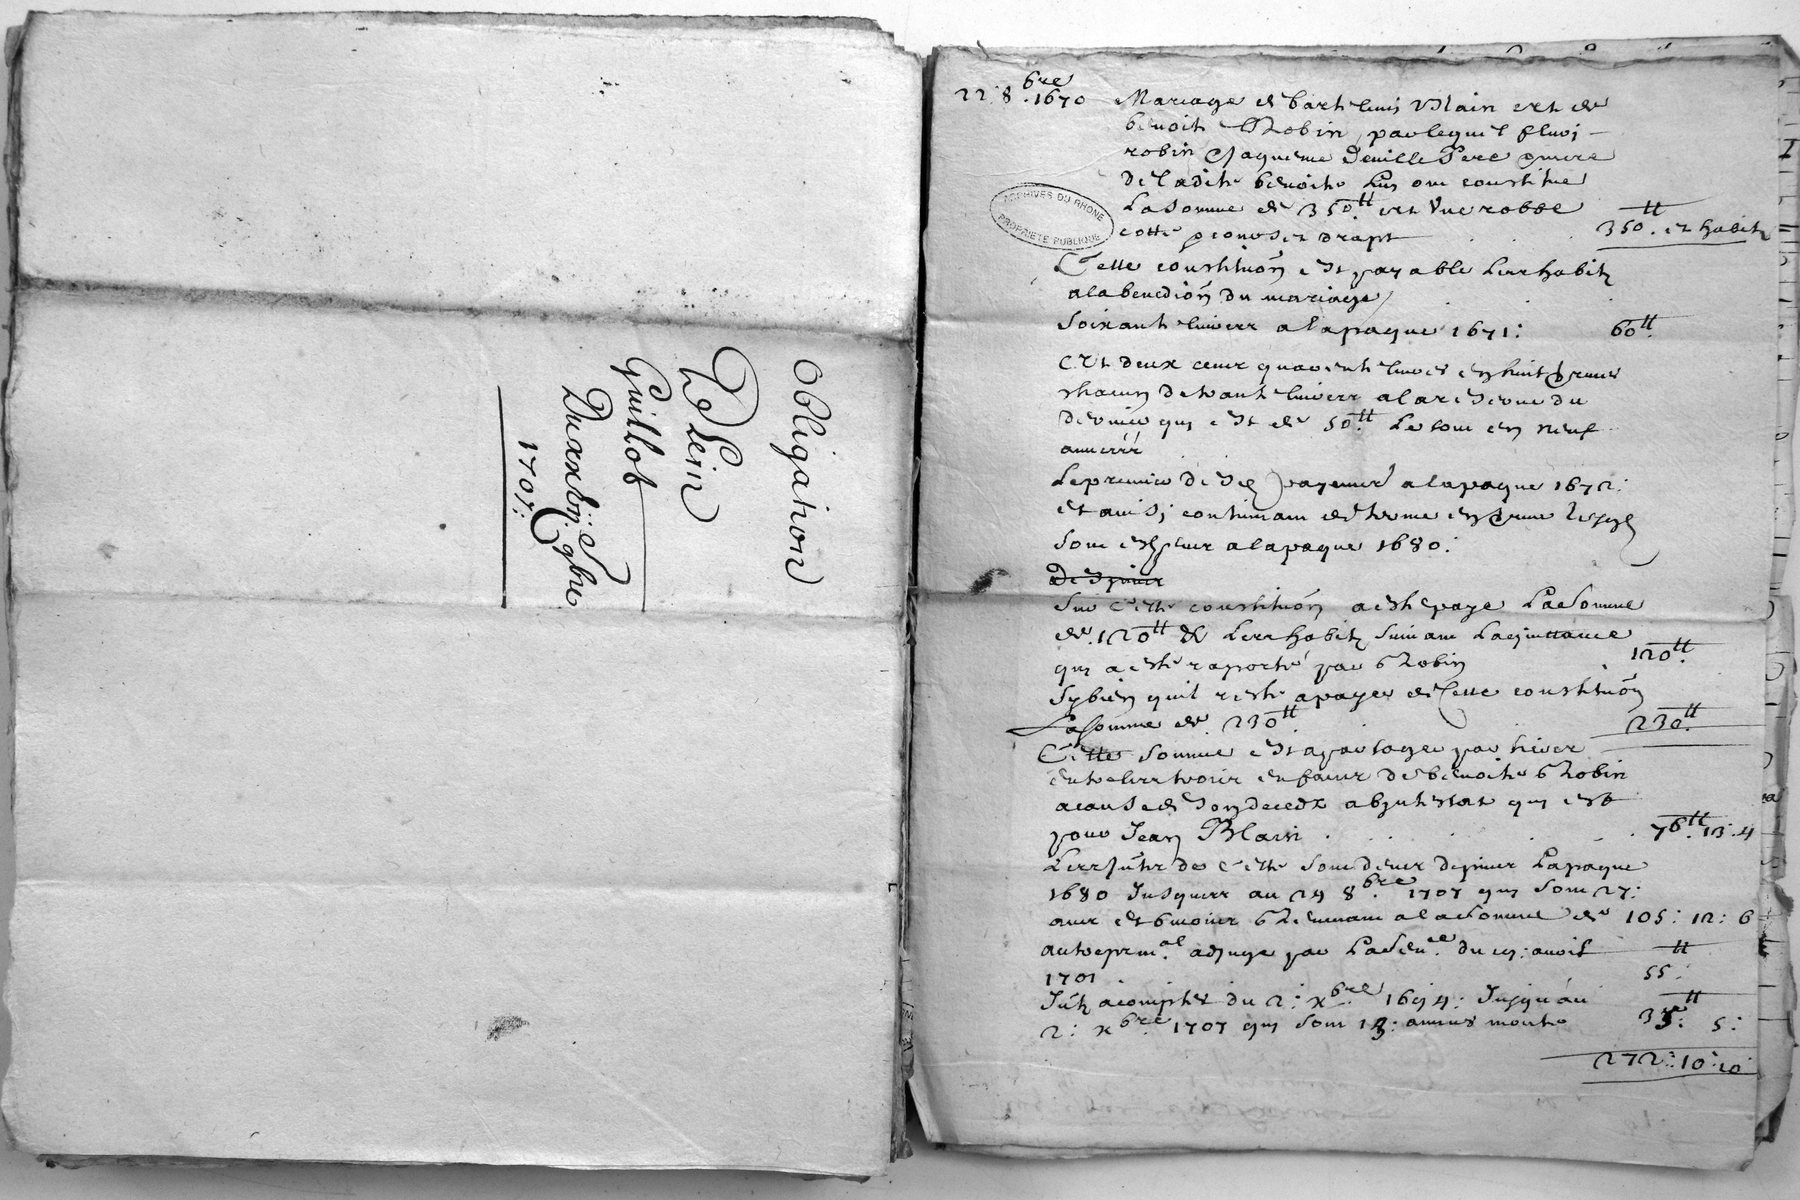 Obligation
Blein
Guillot
Du xxbrje 9bre
1707:
22: 8bre. 1670
Mariage de barthelemy Blain et de
benoite Robin par lequel
robin Jaqueme Deville Pere mere
de ladite benoite luy ont constitue
La somme de 350.tt et Une robbe
cotte drapt
350.tt et habitz
ARCHIVES DU RHONE
PROPRIETE PUBLIQUE
Cette constituõn est payable Les habitz
a la benediõn du mariage
Soixante livres a la paque 1671:
60.tt
Et deux cens quarente livres en huit
chacun de trante livres a la reserve du
dernier qui est de 50.tt Le tout en neuf
annees
Le premier desd payement a la paque 1672:
et ainsi continuant de terme en terme
sont escheus a la paque 1680:
Sur cette constituõn a este paye La somme
de 120tt & Les habitz suivant La quittance
qui a este raporte par Robin
120.tt
Sy bien quil reste a payer de Cette constituõn
La somme de 230tt
230.tt
Cette somme est a partager par tiers
entre les trois enfans de benoite Robin
a cause de son decedz abintestat qui est
pour Jean Blain
76.tt 13. 4
Les de cette somme depuis La paque
1680 Jusques au 29 8bre. 1707 qui sont 27:
ans et 6 mois Revenant a la somme de 105: 12: 6
autre prin.al adjuge par La Sen.ce du 19: avril
1701
55:tt
a compter du 2: xbre 1694: Jusqu'au
2: xbre 1707 qui sont 13: annees monte
35:tt 5:
272: 10: 10